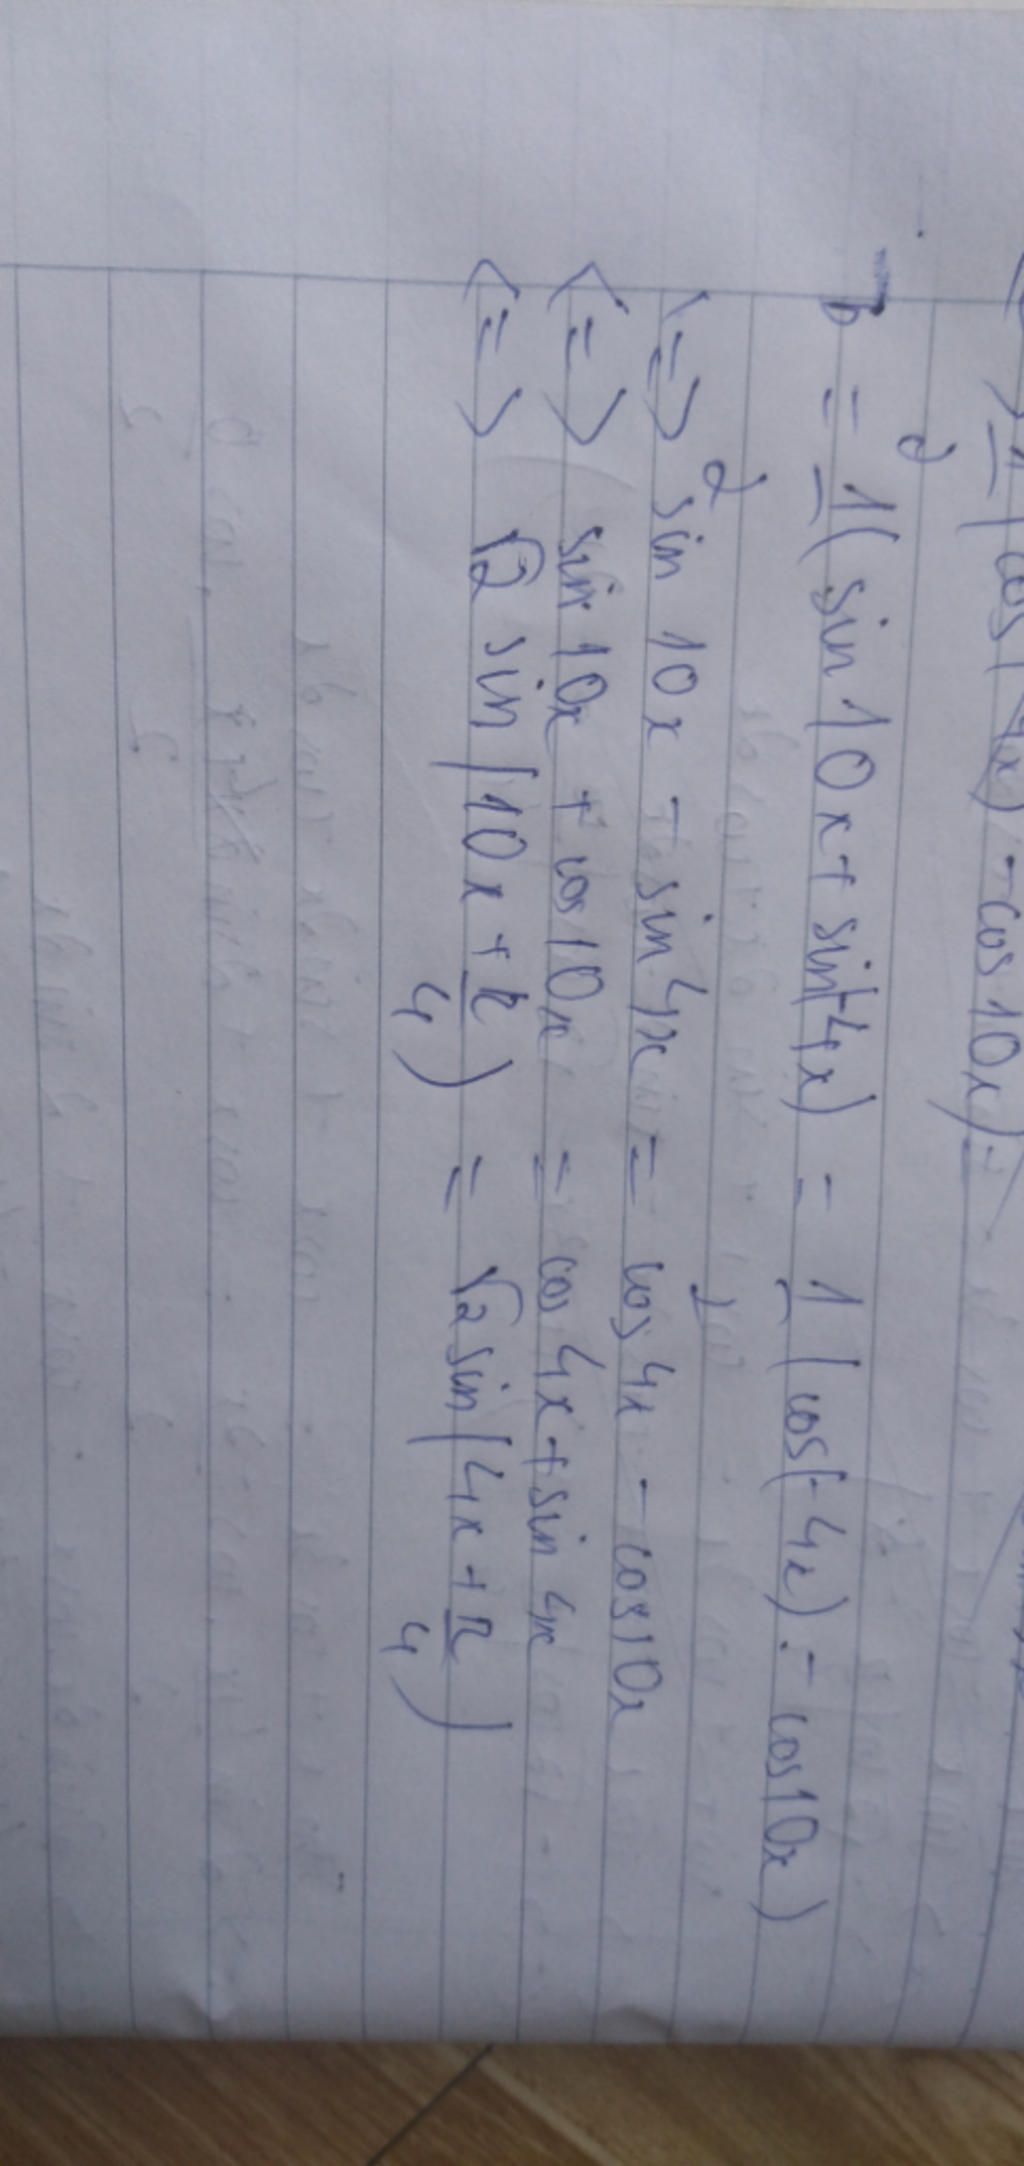 cos(-4x) - cos 10x)
= 1/2 (sin 10x + sin(-4x) = 1/2 (cos(-4x) - cos10x)
<=> sin 10x - sin 4x = cos 4x - cos10x
<=> sin 10x + cos10x = cos 4x + sin 4x
<=> √2 sin(10x + π/4) = √2 sin(4x + π/4)